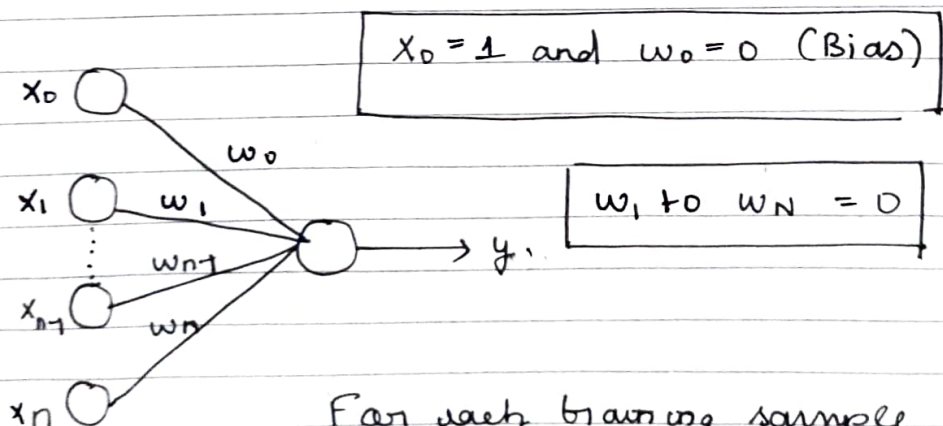 x0 = 1 and w0 = 0 (Bias)
x0
w0
x1
w1
w1 to wN = 0
y.
wn-1
xn-1
wn
xn
For each training sample